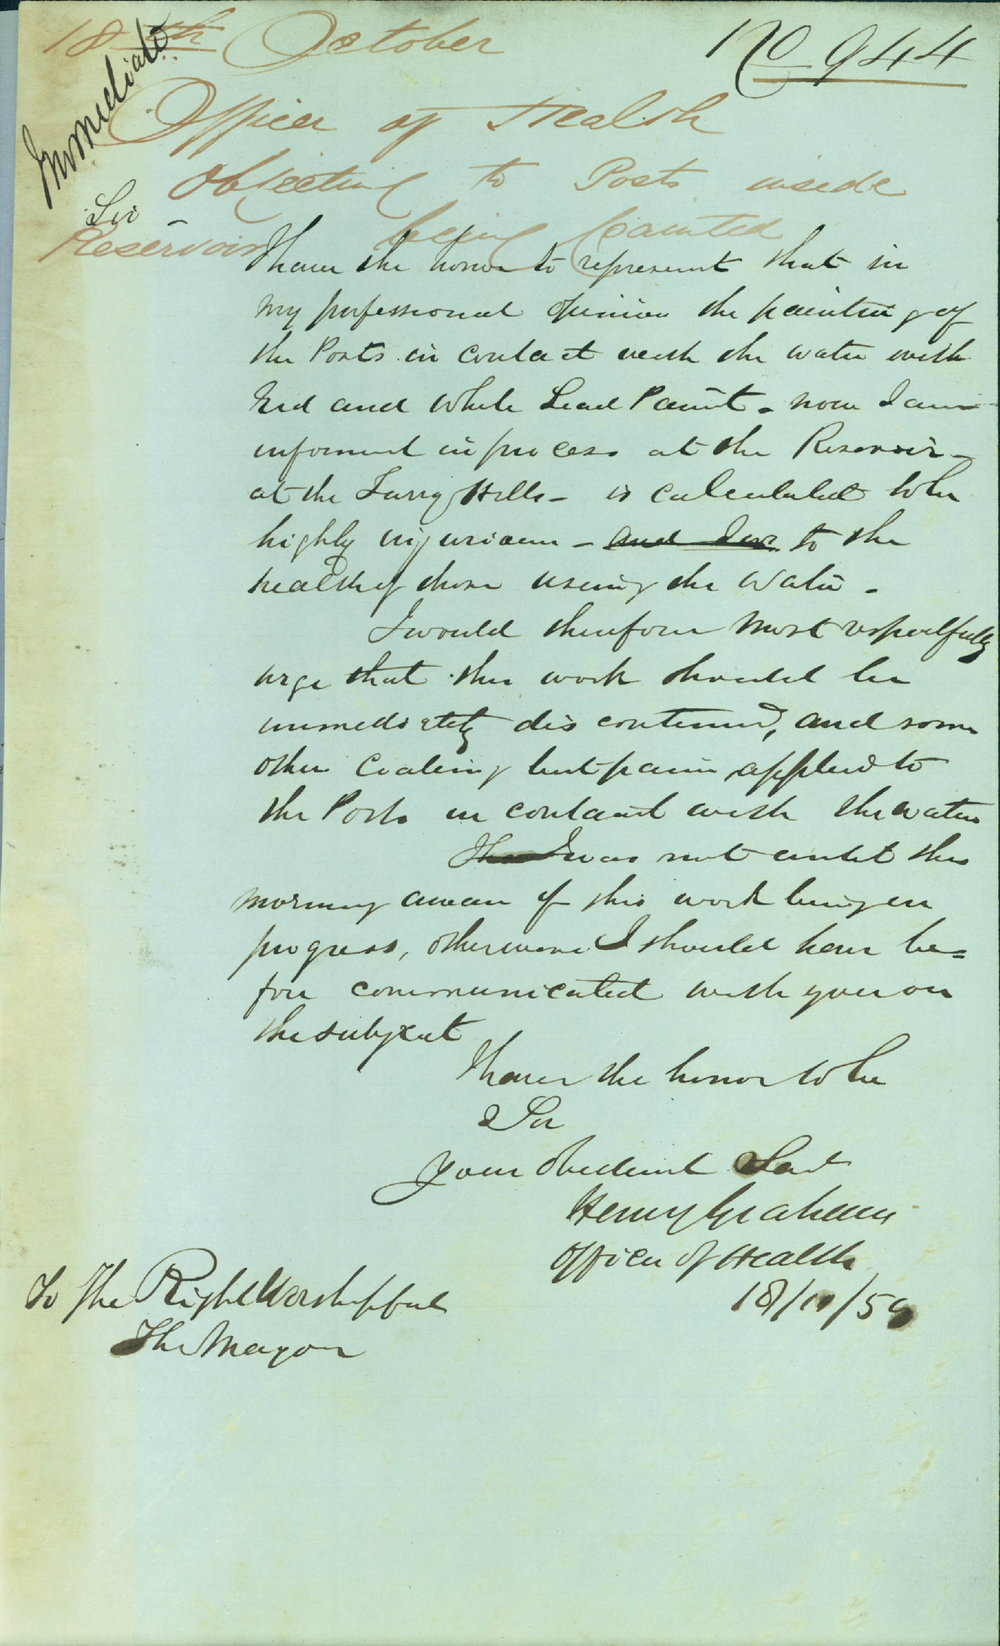 18th October No 944
Immediate
Officer of Health
Objecting to Posts inside
Reservoir being painted
Sir
I have the honor to represent that in
my professional opinion the painting of
the Posts in contact with the water with
Red and White Lead Paint - now I am
informed in process at the Reservoir -
at the Surry Hills - is calculated to be
highly injurious - to the
health of those using the Water -
I would therefore most respectfully
urge that this work should be
immediately discontinued, and some
other Coating but paint applied to
the Posts in contact with the water
I was not until this
morning aware of this work being in
progress, otherwise I should have be=
fore communicated with you on
the subject
I have the honor to be
Sir
Your obedient Servt
Henry Graham
Officer of Health
18/10/59
To The Right Worshipful
The Mayor